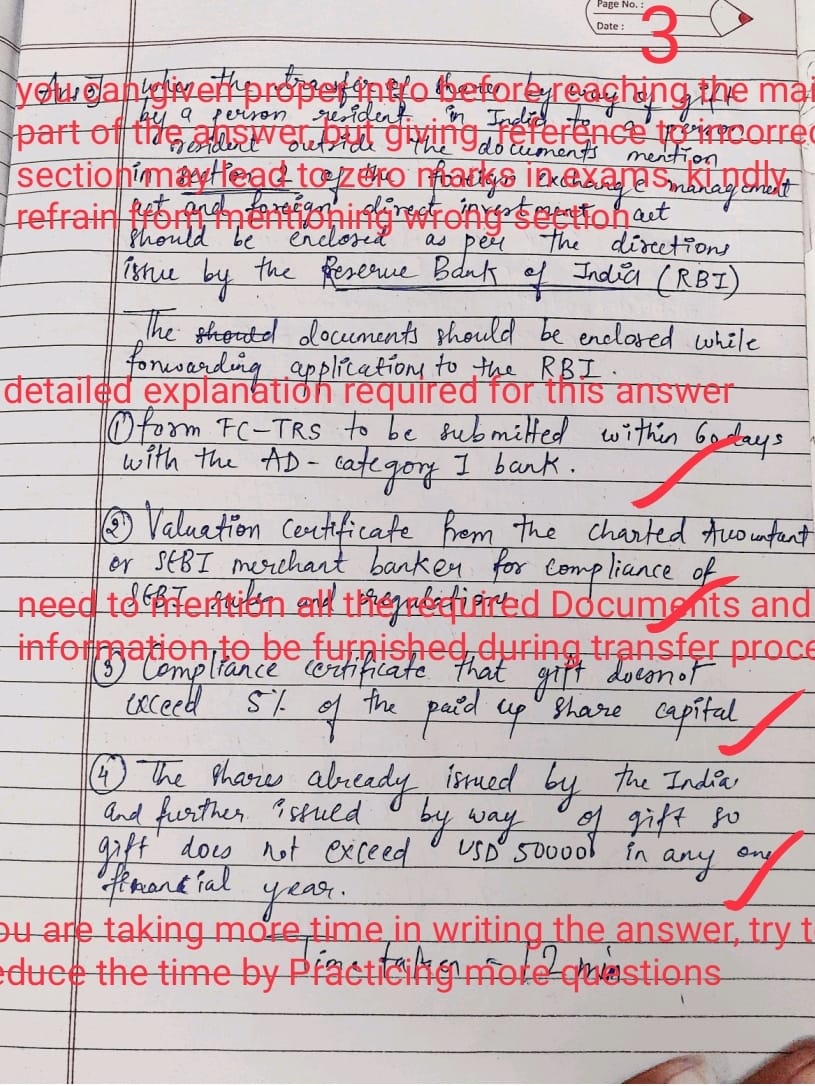 Page No. :
Date :
3
Ans 3) When the transfer of shares by way of gift
you can given proper intro before reaching the mai
by a person resident in India to a person
part of the answer, but giving reference to incorrec
resident outside the documents mention
section may lead to zero marks in exams, ki ndly
in section 2 of the foreign exchange management
refrain from mentioning wrong section
act and foreign direct investment act
should be enclosed as per the directions
issue by the Reserve Bank of India (RBI)
The should documents should be enclosed while
forwarding applications to the RBI.
detailed explanation required for this answer
① form FC-TRS to be submitted within 60 days
with the AD - category I bank.
② Valuation Certificate from the charted Accountant
or SEBI merchant banker for compliance of
SEBI rules and regulations
need to mention all the required Documents and
information to be furnished during transfer proce
③ Compliance certificate that gift doesnot
exceed 5% of the paid up share capital
④ The shares already issued by the India
and further issued by way of gift so
gift does not exceed USD 50000 in any one
financial year.
ou are taking more time in writing the answer, try t
Time taken = 12 min
educe the time by Practicing more questions